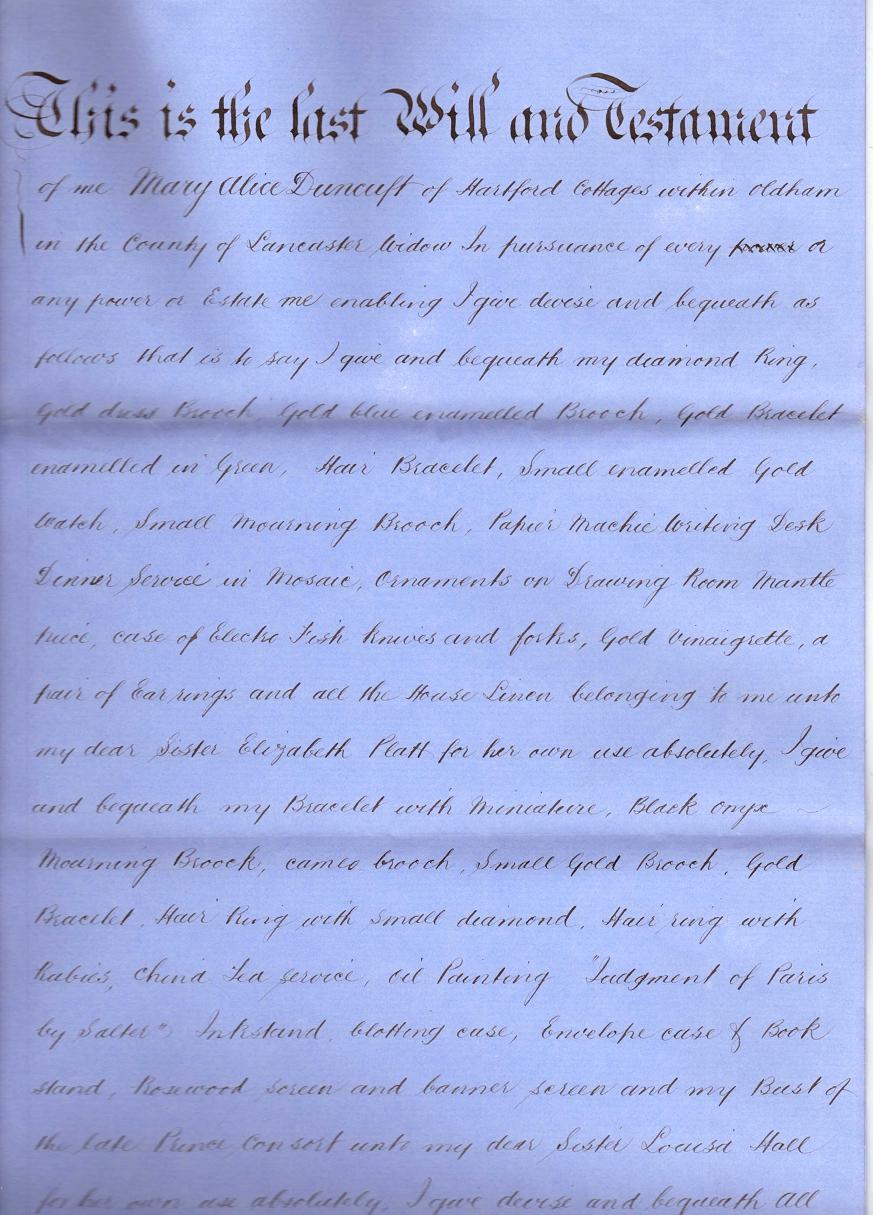 This is the last Will and Testament
of me Mary Alice Duncuft of Hartford Cottages within Oldham
in the County of Lancaster Widow In pursuance of every or
any power or Estate me enabling I give devise and bequeath as
follows that is to say I give and bequeath my diamond Ring,
Gold dress Brooch, Gold blue enamelled Brooch, Gold Bracelet
enamelled in Green, Hair Bracelet, Small enamelled Gold
Watch, Small Mourning Brooch, Papier Machie Writing Desk
Dinner Service in Mosaic, Ornaments on Drawing Room Mantle
piece, case of Electro Fish knives and forks, Gold Vinaigrette, a
pair of Ear rings and all the House Linen belonging to me unto
my dear Sister Elizabeth Platt for her own use absolutely, I give
and bequeath my Bracelet with Miniature, Black Onyx
Mourning Brooch, cameo brooch, Small Gold Brooch, Gold
Bracelet, Hair Ring with small diamond, Hair ring with
Rubies, China Tea service, Oil Painting "Judgment of Paris
by Salter" Inkstand, blotting case, Envelope case & Book
stand, Rosewood screen and banner screen and my Bust of
the late Prince Consort unto my dear Sister Louisa Hall
for her own use absolutely, I give devise and bequeath All